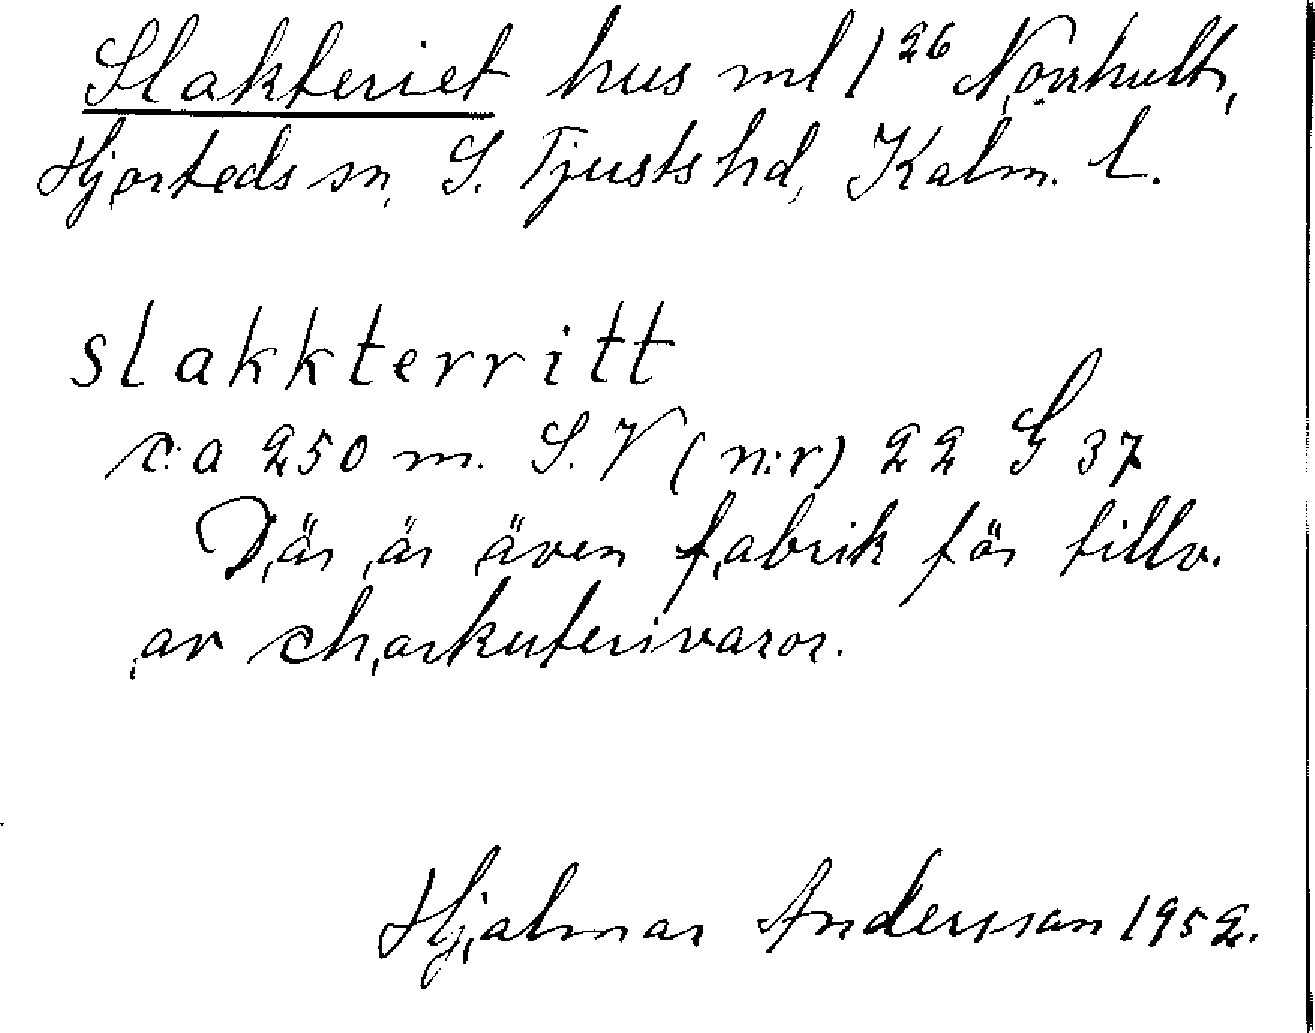 Slakteriet hus ml 1²⁶ Norrhult,
Hjorteds sn, S. Tjusts hd, Kalm. L.
slakkterritt
c:a 250 m. S.V (n:r) 22 G 37
Där är även fabrik för tillv.
av charkuterivaror.
Hjalmar Andersson 1952.